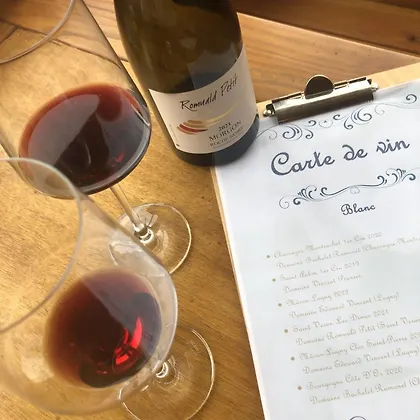 Romuald Petit
2021
MORGON
Carte de vin
Blanc
Chassagne Montrachet 1er Cru 2020
Domaine Bachelet-Ramonet (Chassagne Montra
Saint Aubin 1er Cru 2019
Domaine Vincent
Mâcon-Lugny 2022
Domaine Edouard Vincent (Lugny)
Saint Veran Les 2021
Domaine Romuald Petit (Saint Veran
Mâcon-Lugny Clos Saint Pierre
Domaine Edouard Vincent (Lugny
Bourgogne Côte D'Or 2020
Domaine Bachelet-Ramonet